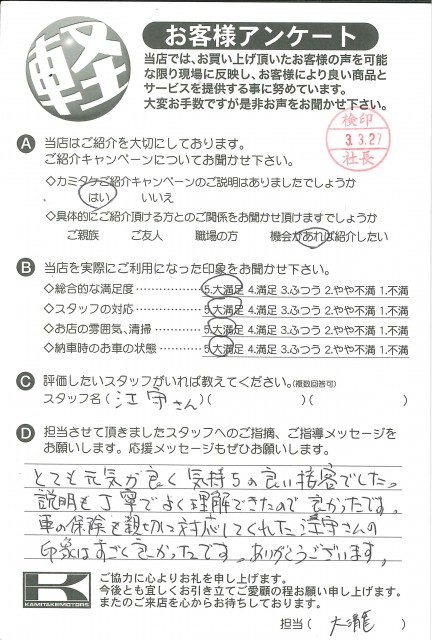 軽
お客様アンケート
当店では、お買い上げ頂いたお客様の声を可能
な限り現場に反映し、お客様により良い商品と
サービスを提供する事に努めています。
大変お手数ですが是非お声をお聞かせ下さい。
検印
3.3.27
社長
A 当店はご紹介を大切にしております。
ご紹介キャンペーンについてお聞かせ下さい。
◇カミタケご紹介キャンペーンのご説明はありましたでしょうか
はい いいえ
◇具体的にご紹介頂ける方とのご関係をお聞かせ頂けますでしょうか
ご親族 ご友人 職場の方 機会があれば紹介したい
B 当店を実際にご利用になった印象をお聞かせ下さい。
◇総合的な満足度 ・・・・・・・・・・・ 5.大満足 4.満足 3.ふつう 2.やや不満 1.不満
◇スタッフの対応 ・・・・・・・・・・・ 5.大満足 4.満足 3.ふつう 2.やや不満 1.不満
◇お店の雰囲気、清掃 ・・・・・・・ 5.大満足 4.満足 3.ふつう 2.やや不満 1.不満
◇納車時のお車の状態 ・・・・・・・ 5.大満足 4.満足 3.ふつう 2.やや不満 1.不満
C 評価したいスタッフがいれば教えてください。(複数回答可)
スタッフ名 ( 江守さん )( )( )
D 担当させて頂きましたスタッフへのご指摘、ご指導メッセージを
お願いします。応援メッセージもぜひお願いします。
とても元気が良く気持ちの良い接客でした。
説明も丁寧でよく理解できたので良かったです。
車の保険も親切に対応してくれた江守さんの
印象はすごく良かったです。ありがとうございます。
K
KAMITAKEMOTORS
ご協力に心よりお礼を申し上げます。
今後とも宜しくお引き立てご愛顧の程お願い申し上げます。
またのご来店を心からお待ちしております。
担当 ( 大瀧 )